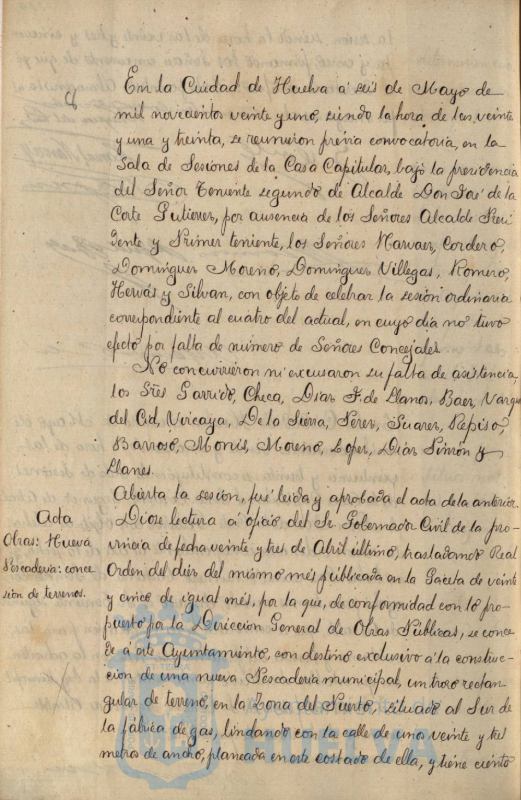 8
En la Cuidad de Huelva á seis de Mayo de
mil novecientos veinte y uno, siendo la hora de las veinte
y una y treinta, se reunieron prévia convocatoria, en la
Sala de Sesiones de la Casa Capitular, bajo la presidencia
del Señor Teniente segundo de Alcalde Don José de la
Corte Gutierrez, por ausencia de los Señores Alcalde Presi
dente y Primer teniente, los Señores Narvaez, Cordero,
Dominguez Moreno, Dominguez Villegas, Romero,
Hervás y Silvan, con objeto de celebrar la sesión ordinaria
correspondiente al cuatro del actual, en cuyo dia no tuvo
efecto por falta de número de Señores Concejales.
No concurrieron ni excusaron su falta de asistencia,
los Sres Garrido, Checa, Diaz F. de Llanos, Baez, Vargas
del Cid, Vizcaya, De la Sierra, Perez, Suarez, Repiso,
Barroso, Monís, Moreno, Lopez, Diáz Simón y
Llanes.
Abierta la sesión, fué leida y aprobada el acta de la anterior.
Acta
Obras: Nueva
Pescaderia: conce
sión de terrenos.
Diose lectura á oficio del Sr. Gobernador Civil de la pro
vincia de fecha veinte y tres de Abril último, trasladando Real
Orden del diez del mismo més publicada en la Gaceta de veinte
y cinco de igual més, por la que, de conformidad con lo pro-
puesto por la Dirección General de Obras Públicas, se conce
de á este Ayuntamiento, con destino exclusivo á la construc-
ción de una nueva Pescaderia municipal, un trozo rectan-
gular de terreno, en la Zona del Puerto, situado al Sur de
la fábrica de gas, lindando con la calle de una veinte y tres
metros de ancho, planeada en este costado de ella, y tiene ciento
HUELVA